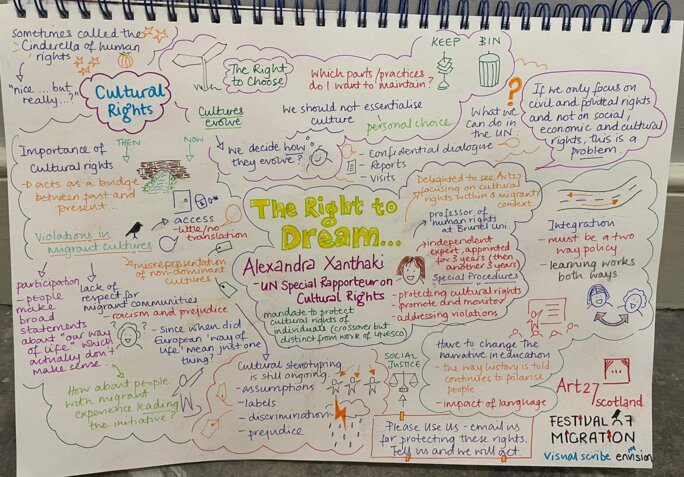 sometimes called the
Cinderella of human
rights
"nice... but
really...?"
Cultural
Rights
The Right
to Choose
Which parts/practices
do I want to maintain?
KEEP
BIN
Cultures
evolve
We should not essentialise
culture
personal choice
we decide how
they evolve?
What we
can do in
the UN:
- Confidential dialogue
- Reports
- Visits
If we only focus on
civil and political rights
and not on social,
economic and cultural
rights, this is a
problem.
Importance of
Cultural rights
THEN
NOW
→ acts as a bridge
between past and
present...
→ access
- little/no
translation
Violations in
migrant cultures
→ misrepresentation
of non-dominant
cultures
participation
- people
make
broad
statements
about "our way
of life" which
actually don't
make sense
lack of
respect for
migrant communities
- racism and prejudice
- Since when did
European 'way of
life' mean just one
thing?
How about people
with migrant
experience leading
the initiative?
The Right to
Dream...
Alexandra Xanthaki
- UN Special Rapporteur on
Cultural Rights -
mandate to protect
cultural rights of
individuals (crossover but
distinct from work of UNESCO)
Delighted to see Art27
focusing on cultural
rights within a migrant
context
professor of
human rights
at Brunel Uni.
independent
expert, appointed
for 3 years (then
another 3 years)
Special Procedures
- protecting cultural rights
- promote and monitor
- addressing violations
Integration
- must be a two
way policy
- learning works
both ways
Cultural sterotyping
is still ongoing
- assumptions
- labels
- discrimination
- prejudice
SOCIAL
JUSTICE
Have to change the
narrative in education
- the way history is told
continues to polarise
people
- impact of language
Please Use Us - email us
for protecting these rights.
Tell us and we will act
Art27
scotland
FESTIVAL
MIGRATION
Visual scribe envision